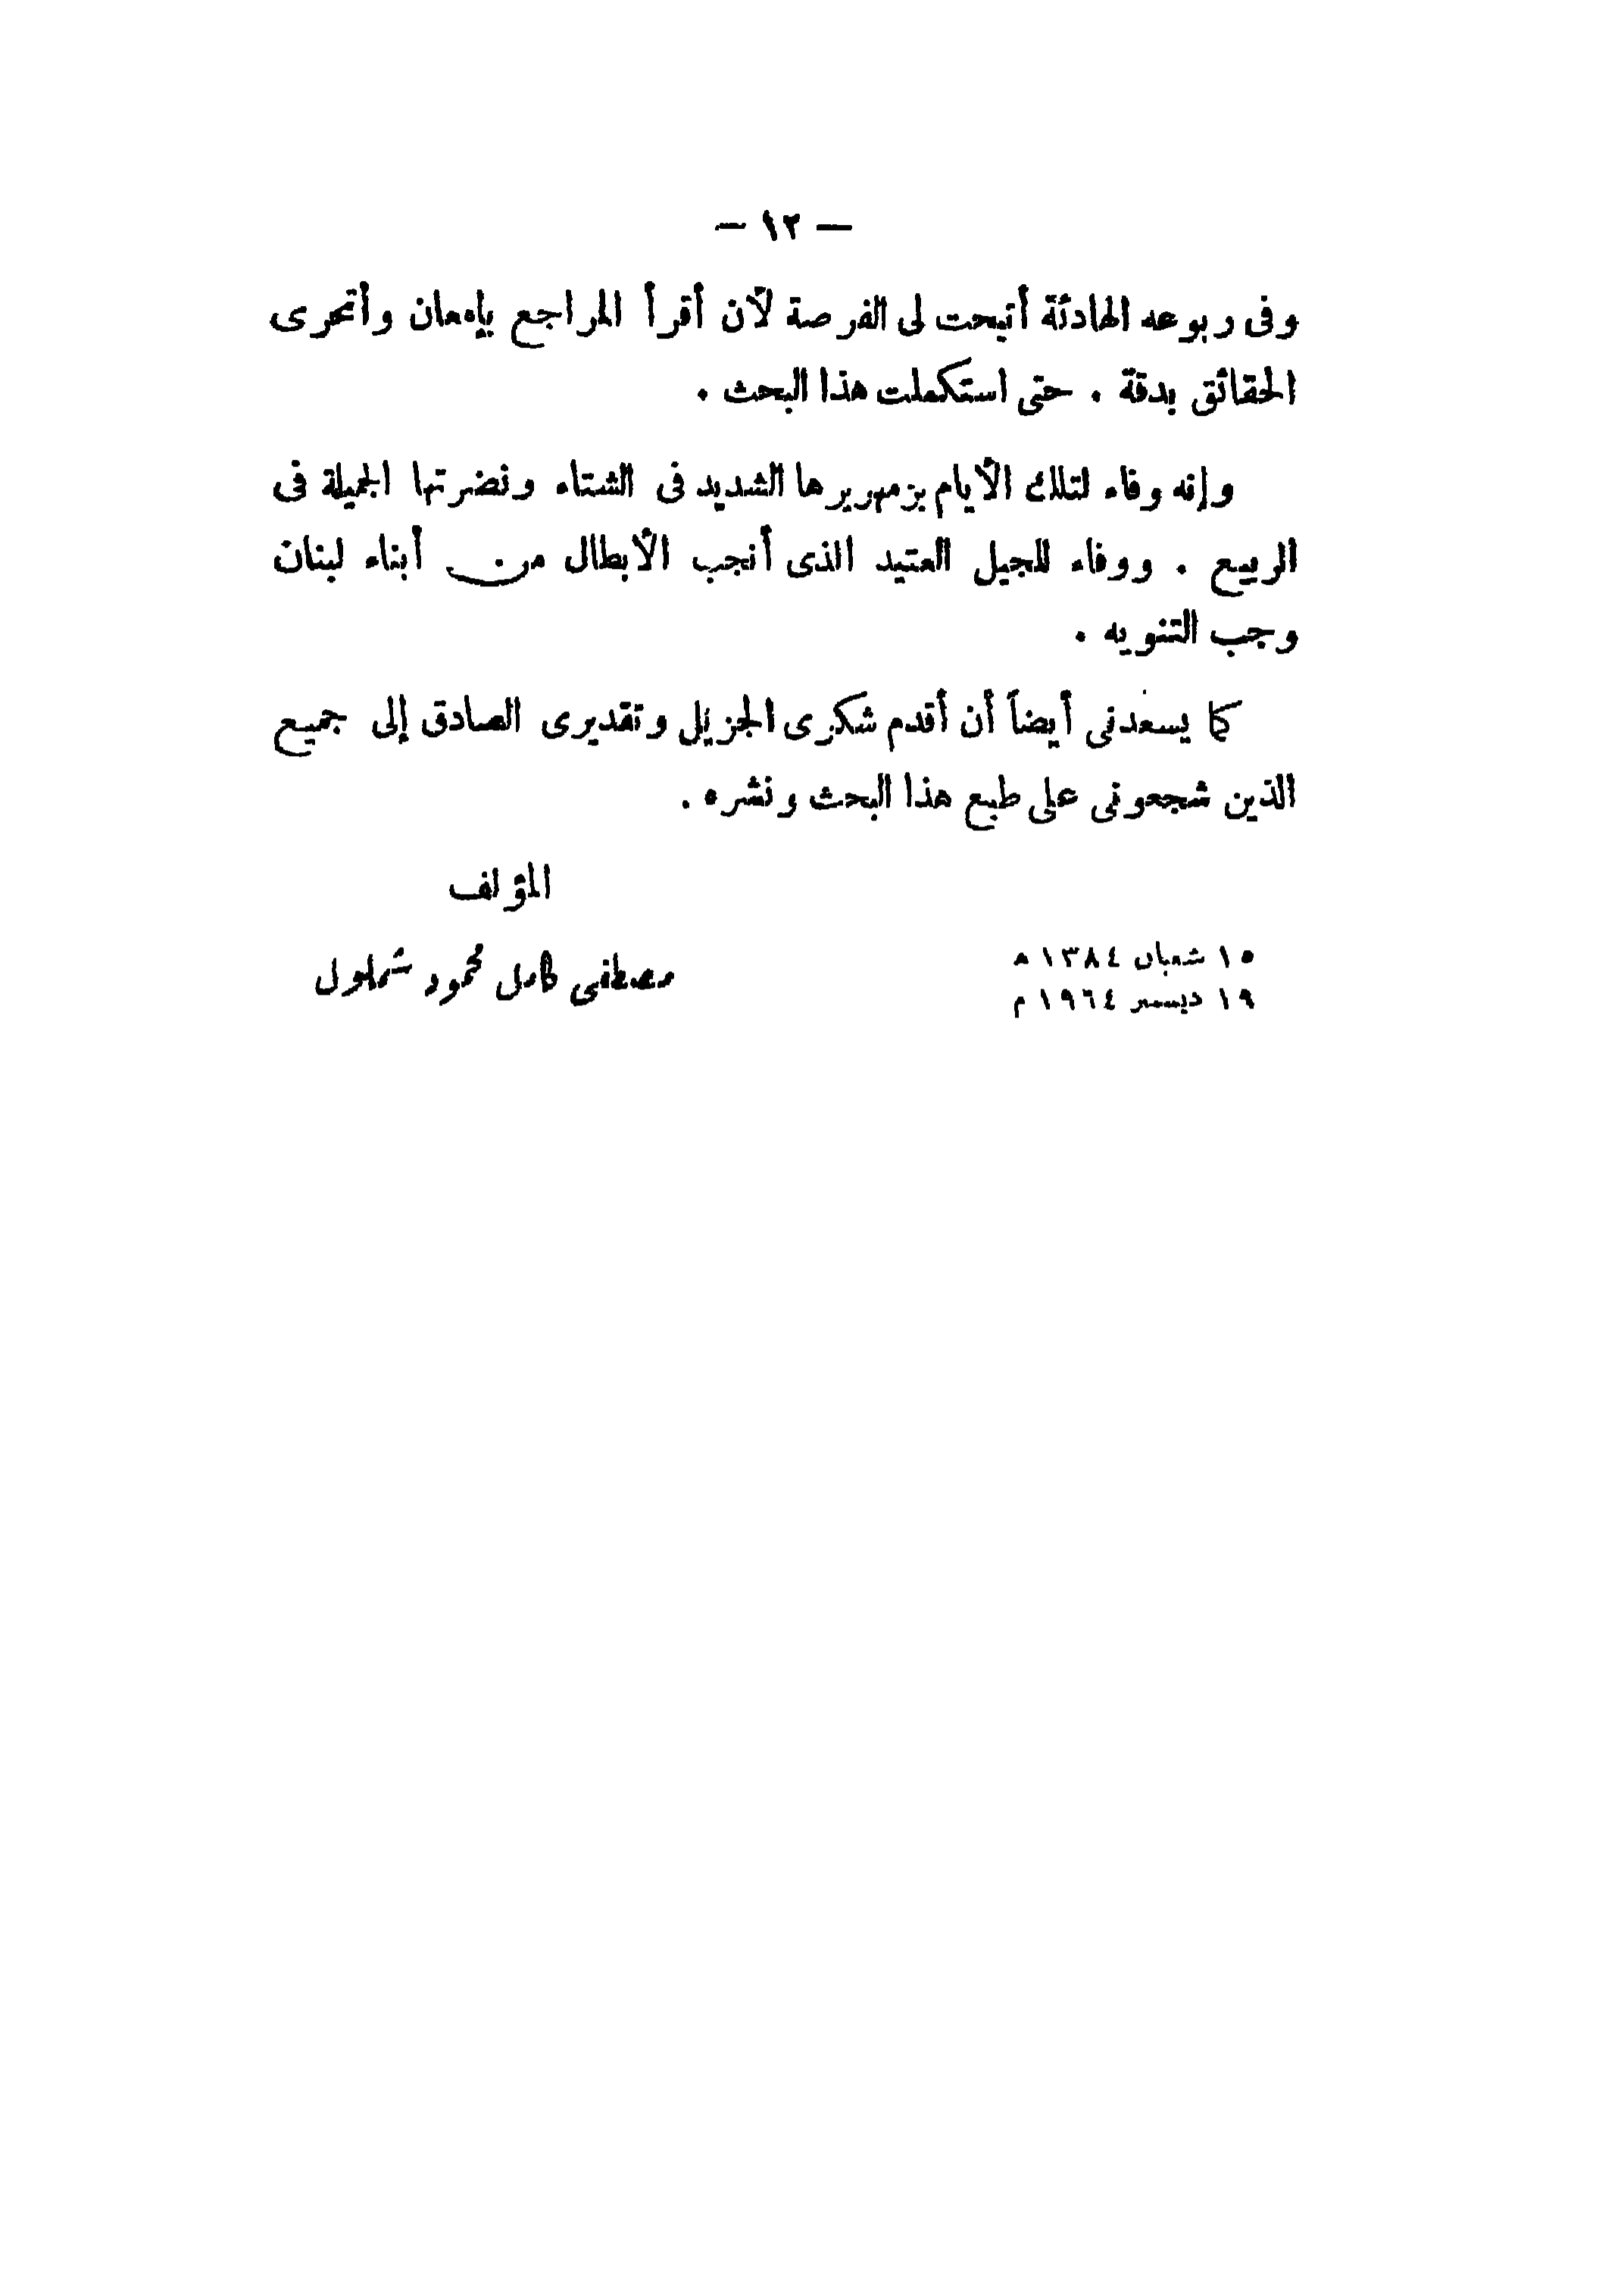 — ١٢ —
وفى ربوعه الهادئة أتيحت لى الفرصة لأن أقرأ المراجع بإمعان وأتحرى
الحقائق بدقة . حتى استكملت هذا البحث .
وإنه وفاء لتلك الأيام بزمهريرها الشديد فى الشتاء ونضرتها الجميلة فى
الربيع . ووفاء للجيل العتيد الذى أنجب الأبطال من أبناء لبنان
وجب التنويه .
كما يسعدنى أيضاً أن أقدم شكرى الجزيل وتقديرى الصادق إلى جميع
الذين شجعونى على طبع هذا البحث ونشره .
المؤلف
١٥ شعبان ١٣٨٤ ھ
مصطفى كامل محمود شملول
١٩ ديسمبر ١٩٦٤ م